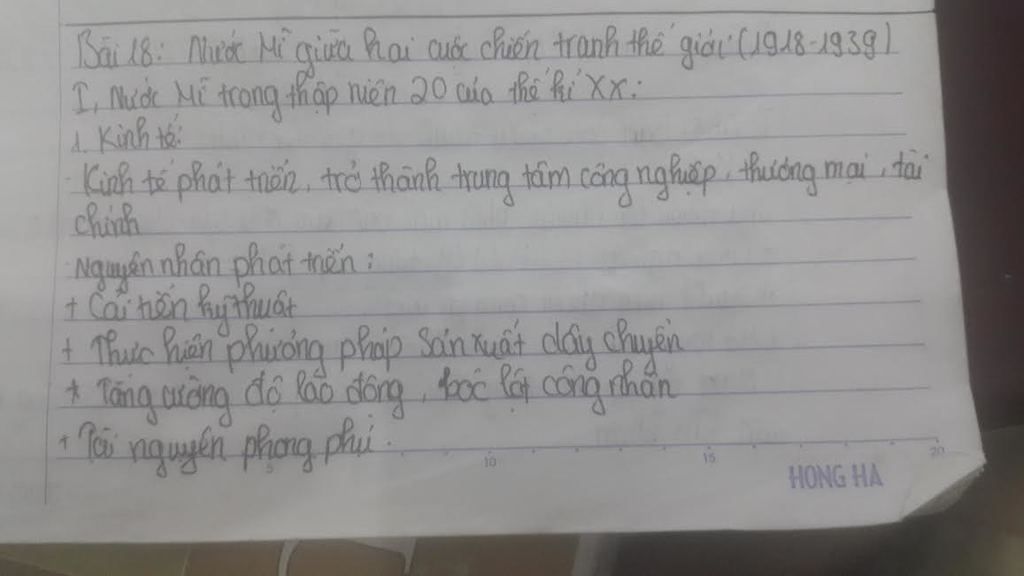 Bài 18: Nước Mĩ giữa hai cuộc chiến tranh thế giới (1918-1939)
I, Nước Mĩ trong thập niên 20 của thế kỉ XX:
1. Kinh tế:
- Kinh tế phát triển, trở thành trung tâm công nghiệp, thương mại, tài
chính
- Nguyên nhân phát triển:
+ Cải tiến kỹ thuật
+ Thực hiện phương pháp sản xuất dây chuyền
+ Tăng cường độ lao động, bóc lột công nhân
+ Tài nguyên phong phú.
5 10 15 20
HONG HA